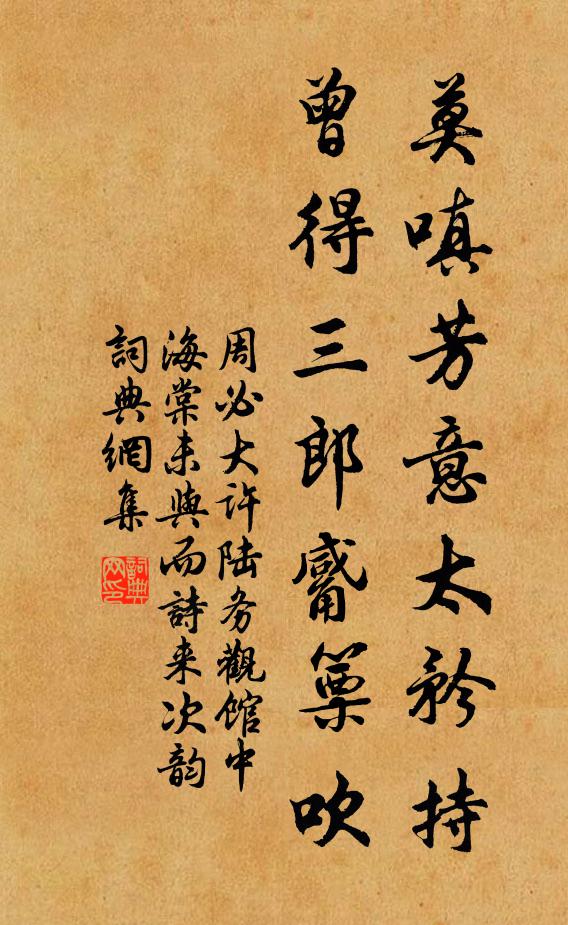 莫嗔芳意太矜持
曾得三郎觱篥吹
周必大許陆务觀館中
海棠未與而詩来次韵
詞典網集
詞典网印